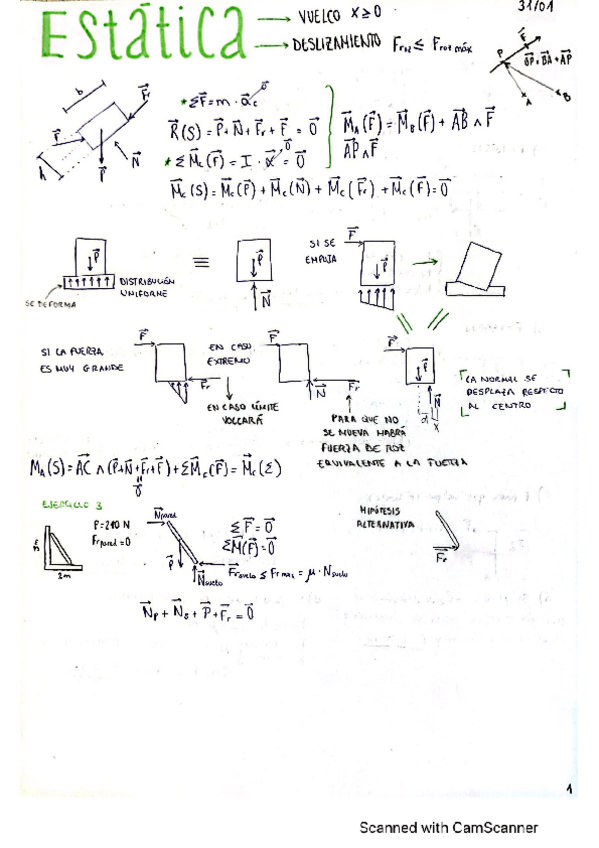 Estática → VUELCO X ≥ 0
→ DESLIZAMIENTO Froz ≤ Froz máx
31/01
P F
BP = BA + AP
A B
b Fr
F h P N
* ΣF = m · a_c 0
R(S) = P + N + Fr + F = 0
M_A(F) = M_B(F) + AB ∧ F
AP ∧ F
* Σ M_c(F) = I · α = 0
M_c(S) = M_c(P) + M_c(N) + M_c(Fr) + M_c(F) = 0
P
DISTRIBUCIÓN
UNIFORME
SE DEFORMA
≡
P
N
SI SE
EMPUJA
F
P
SI LA FUERZA
ES MUY GRANDE
F
Fr
EN CASO
EXTREMO
EN CASO LÍMITE
VOLCARÁ
F
N
Fr
PARA QUE NO
SE MUEVA HABRÁ
FUERZA DE ROZ
EQUIVALENTE A LA FUERZA
F
P
N
x
LA NORMAL SE
DESPLAZA RESPECTO
AL CENTRO
M_A(S) = AC ∧ (P + N + Fr + F) + Σ M_c(F) = M_c(Σ)
0
EJERCICIO 3
P = 210 N
Fr pared = 0
N pared
P
N suelo
Σ F = 0
Σ M(F) = 0
Fr suelo ≤ Fr max = μ · N suelo
HIPÓTESIS
ALTERNATIVA
Fr
N_P + N_s + P + Fr = 0
1
Scanned with CamScanner